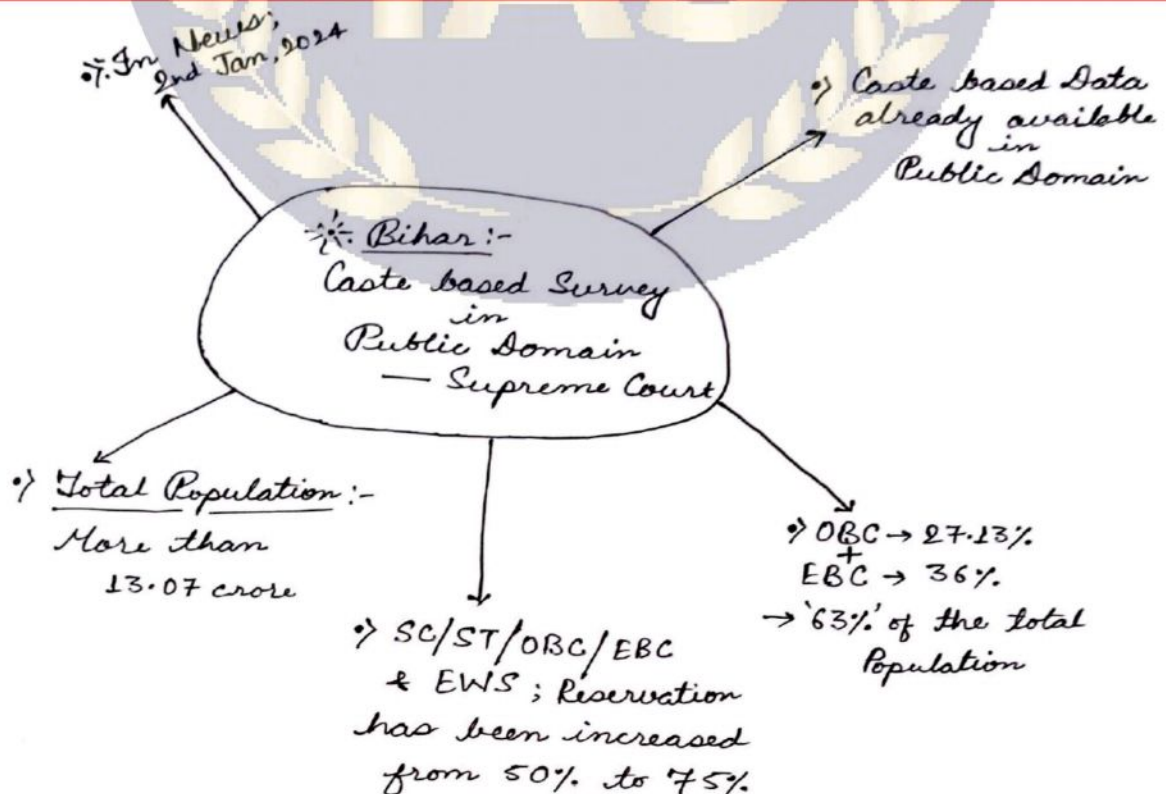 IAS
•) In News;
2nd Jan, 2024
•) Caste based Data
already available
in
Public Domain
Bihar:-
Caste based Survey
in
Public Domain
— Supreme Court
•) Total Population:-
More than
13.07 crore
•) SC/ST/OBC/EBC
& EWS ; Reservation
has been increased
from 50% to 75%
•) OBC → 27.13%
+
EBC → 36%
→ '63%' of the total
Population